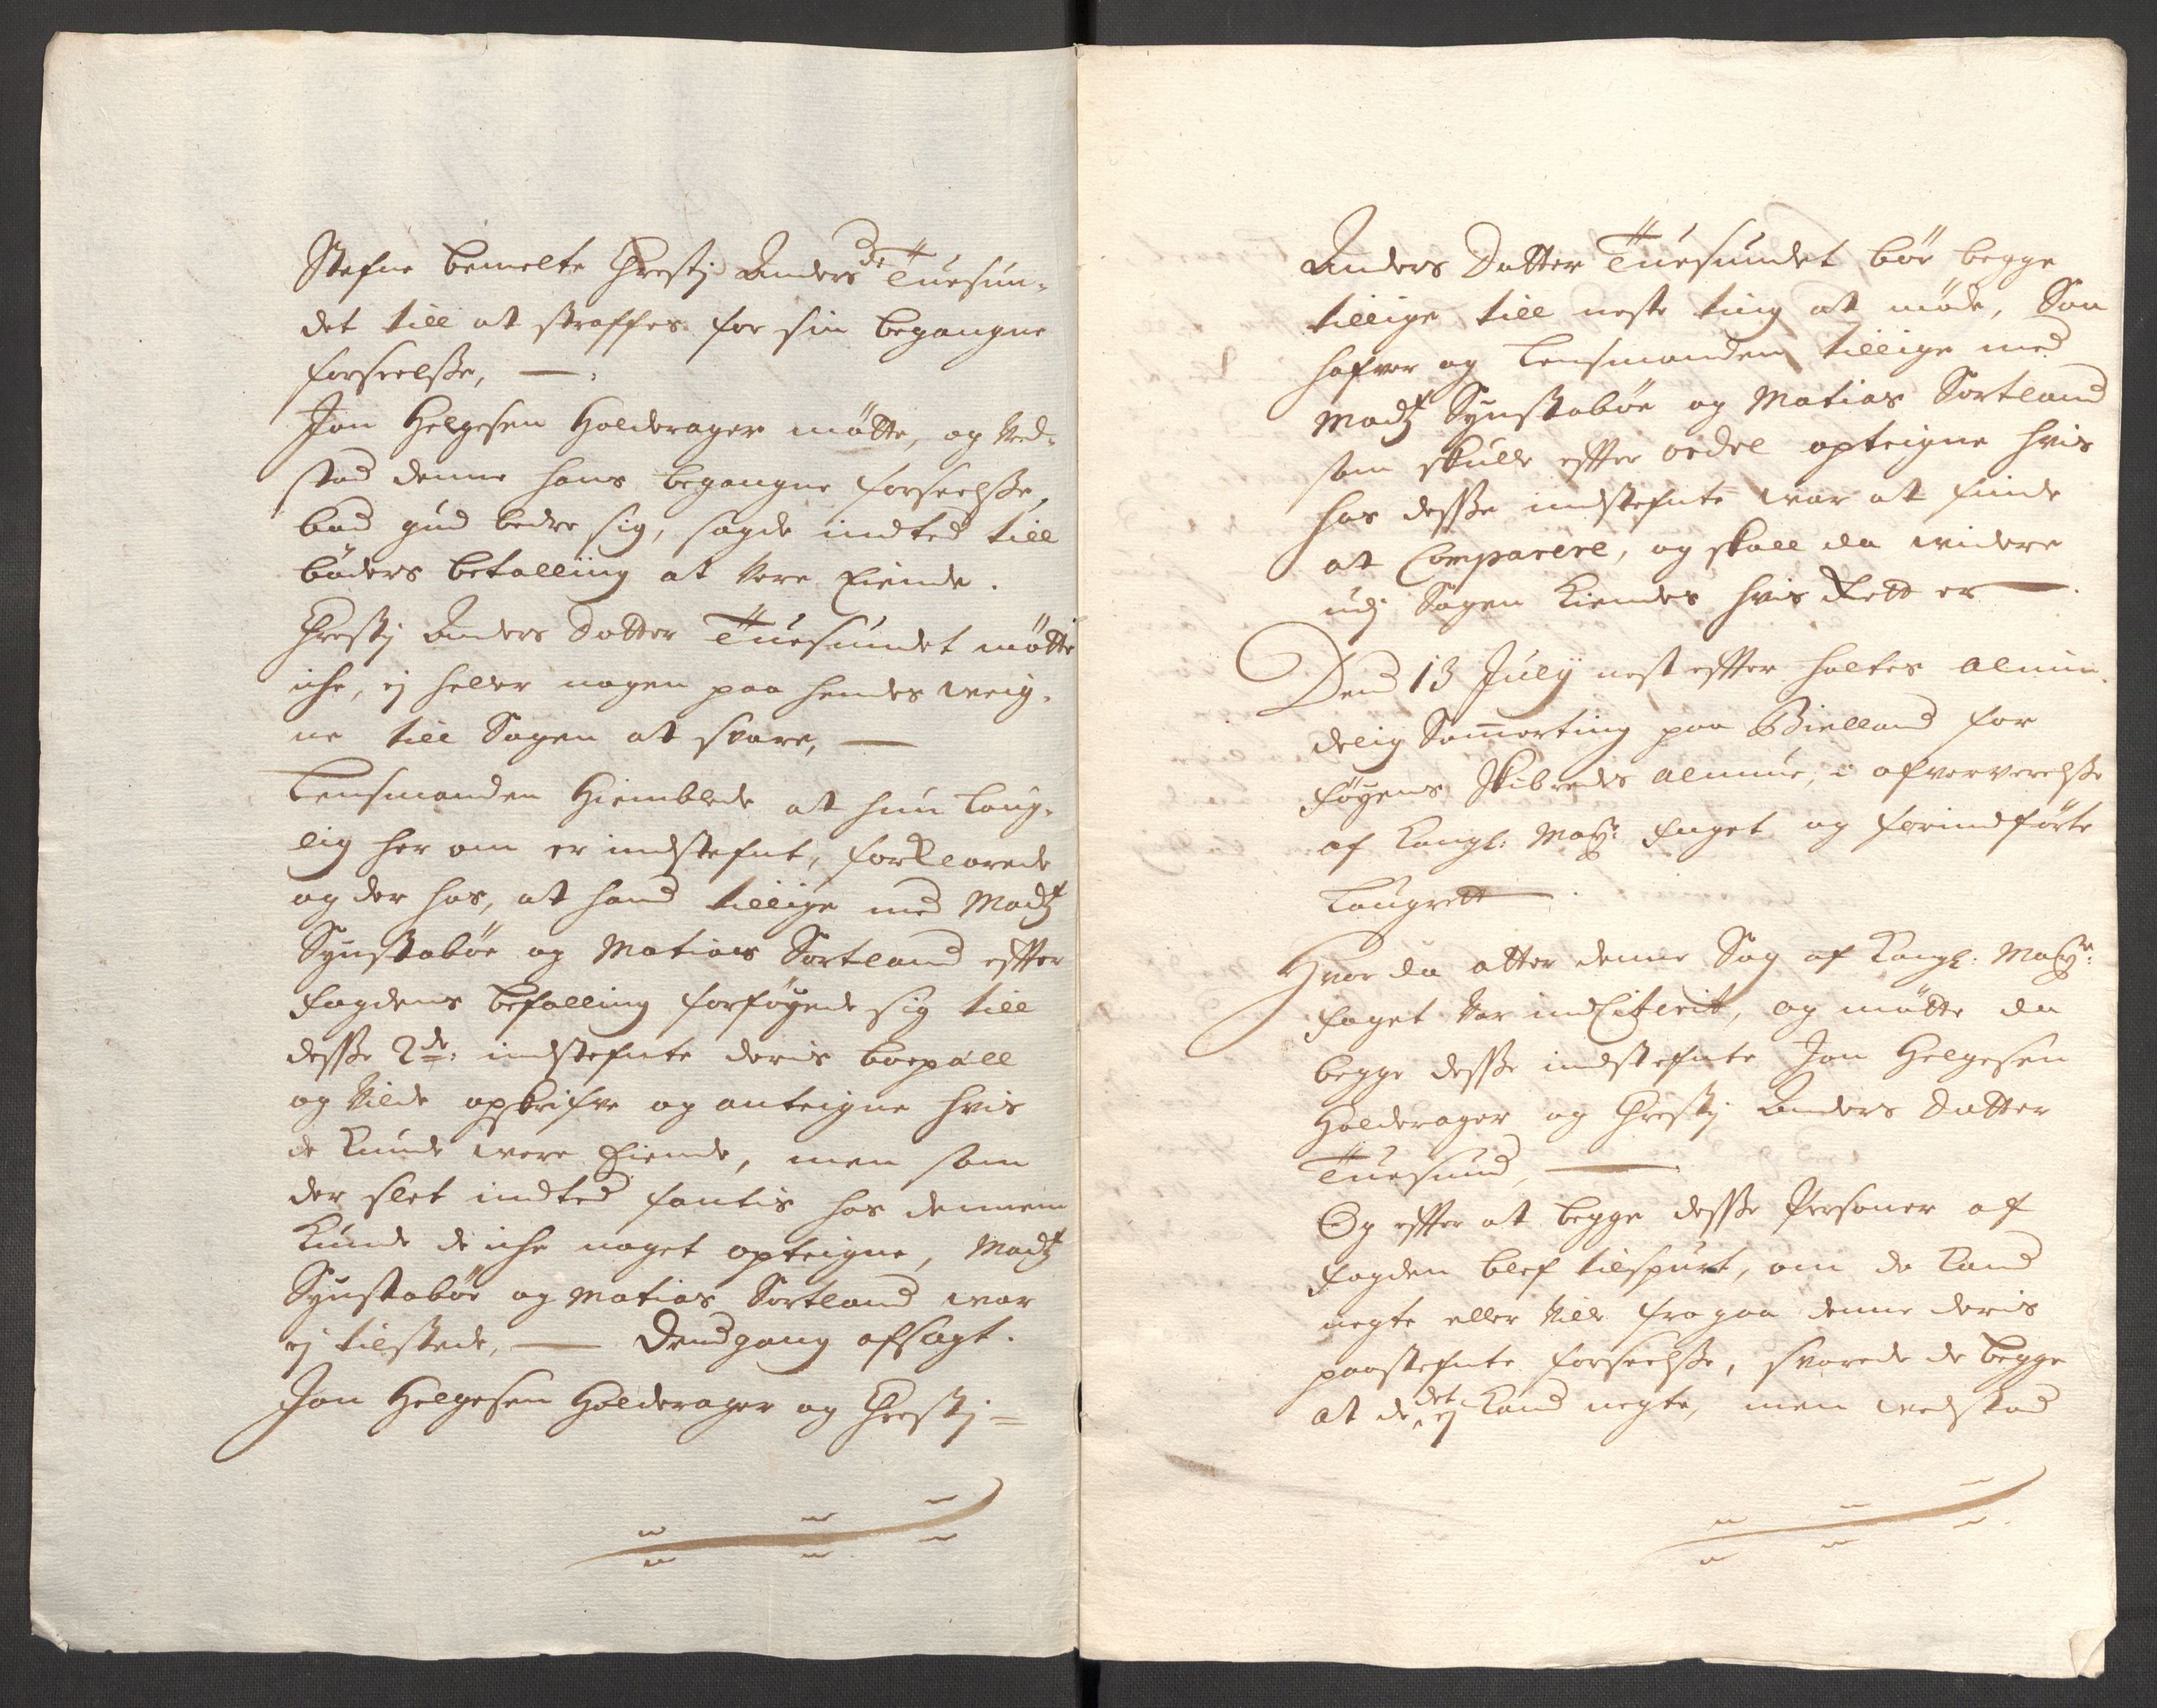 Stefne bemelte Chresti Anders dr Tuesun-
det till at straffes for sin begangne
forseelsse, —
Jon Helgesen Holderager mötte, og ved-
stod denne hans begangne forseelsse,
bad gud bedre sig, sagde indted till
böders betalling at vere Eiende.
Chresti Anders Datter Tuesundet mötte
iche, ej heller nogen paa hendes veig-
ne till Sagen at svare, —
Lensmanden Hiemblede at hun loug-
lig her om er indstefnt, forklarede
og der hos, at hand tillige med Madtz
Synstabøe og Matias Sortland effter
fogdens befalling forføyede sig till
desse 2de: indstefnte deris boepæll
og vilde opskrifve og anteigne hvis
de kunde vere Eiende, men som
der slet indted fantis hos dennem
kunde de iche noget opteigne, Madtz
Synstabøe og Matias Sortland var
ej tilstede, — Dendgang afsagt.
Jon Helgesen Holderager og Chresti =
Anders Datter Tuesundet bör begge
tillige till neste ting at møde, Som
hafver og Lensmanden tillige med
Madtz Synstabøe og Matias Sortland
som skulle effter ordre opteigne hvis
hos desse indstefnte var at finde
at Comparere, og skall da videre
udj Sagen kiendes hvis Rett er —
Dend 13 Julij nest effter holtes almin-
delig Sommerting paa Bielland for
Føyens Skibredes almue, i ofververelsse
af Kongl: Maÿ: Foget og forindførte
Laugrett
Hvor da atter denne Sag af Kongl: Maÿ:
foget var indCiterit, og mötte da
begge desse indstefnte Jon Helgesen
Holderager og Chresti Anders Datter
Tuesund, —
Og effter at begge desse Personer af
fogden blef tilspurt, om de kand
negte eller vill fragaa denne deris
paastefnte forseelsse, svarede de begge
at de det ej kand negte, men vedstod